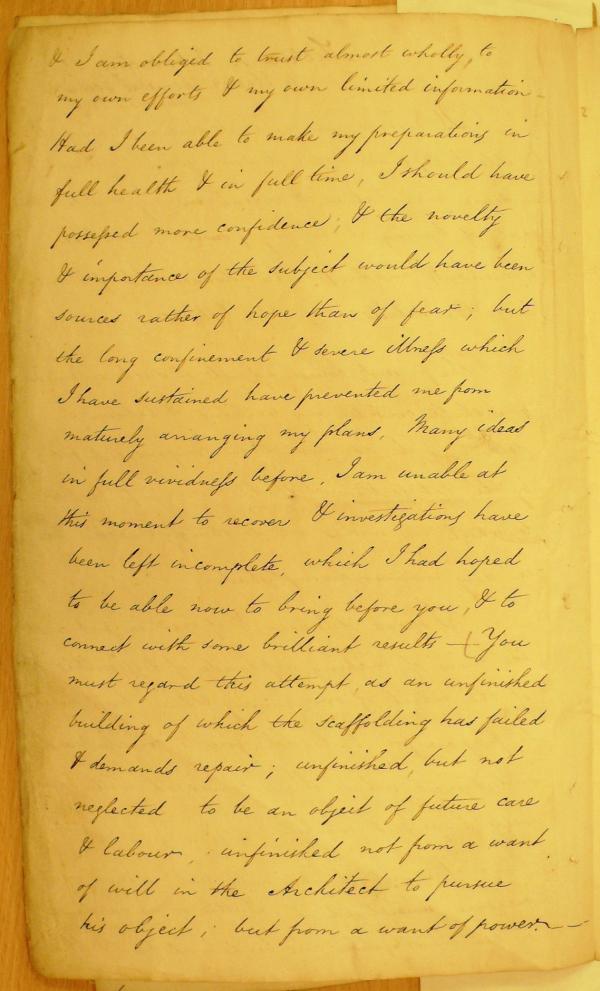 & I am obliged to trust almost wholly, to
my own efforts & my own limited information –
Had I been able to make my preparations in
full health & in full time, I should have
possessed more confidence; & the novelty
& importance of the subject would have been
sources rather of hope than of fear; but
the long confinement & severe illness which
I have sustained have prevented me from
maturely arranging my plans. Many ideas
in full vividness before, I am unable at
this moment to recover & investigations have
been left incomplete, which I had hoped
to be able now to bring before you, & to
connect with some brilliant results – (You
must regard this attempt, as an unfinished
building of which the scaffolding has failed
& demands repair; unfinished, but not
neglected to be an object of future care
& labour, unfinished not from a want
of will in the Architect to pursue
his object; but from a want of power. –